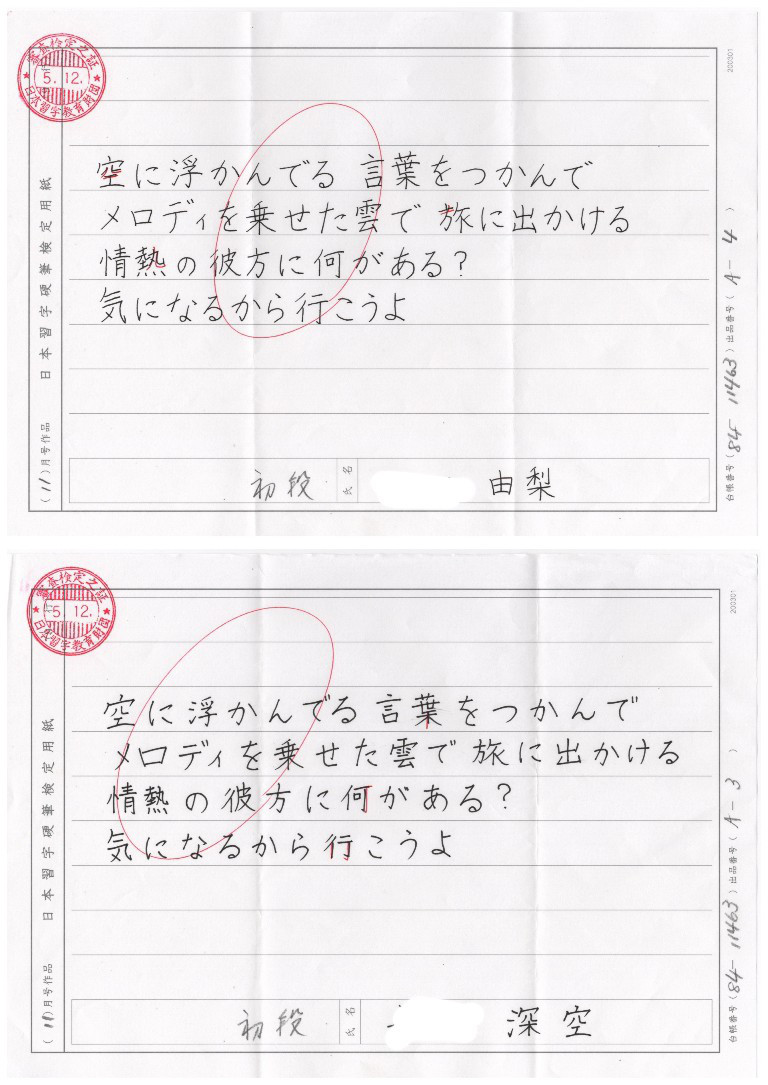 審査検定之証
5.12.
日本習字教育財団
200301
空に浮かんでる 言葉をつかんで
メロディを乗せた雲で 旅に出かける
情熱の彼方に何がある?
気になるから行こうよ
日本習字硬筆検定用紙
(11)月号作品
初段
氏名
由梨
台帳番号(84-11463)出品番号(A-4)
審査検定之証
5.12.
日本習字教育財団
200301
空に浮かんでる 言葉をつかんで
メロディを乗せた雲で 旅に出かける
情熱の彼方に何がある?
気になるから行こうよ
日本習字硬筆検定用紙
(11)月号作品
初段
氏名
深空
台帳番号(84-11463)出品番号(A-3)